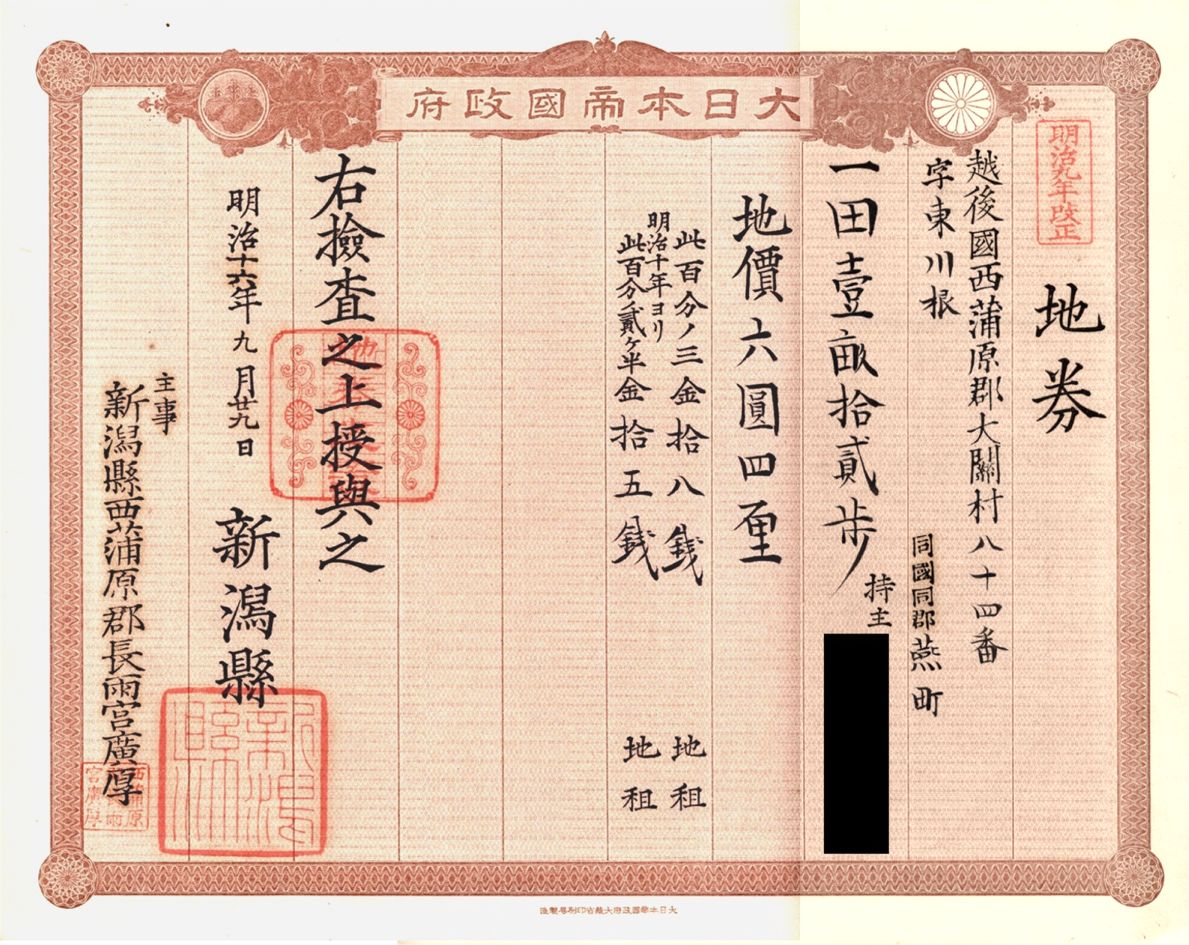 大日本帝國政府
明治九年改正
地券
越後國西蒲原郡大關村八十四番
字東川根
同國同郡燕町
一田壹畝拾貳歩
持主
地價六圓四厘
此百分ノ三金拾八錢 地租
明治十年ヨリ
此百分ノ貳ヶ半金拾五錢 地租
右撿査之上授與之
明治十六年九月廿九日
新潟縣
主事
新潟縣西蒲原郡長雨宮廣厚
大日本帝國政府大藏省印刷局製造